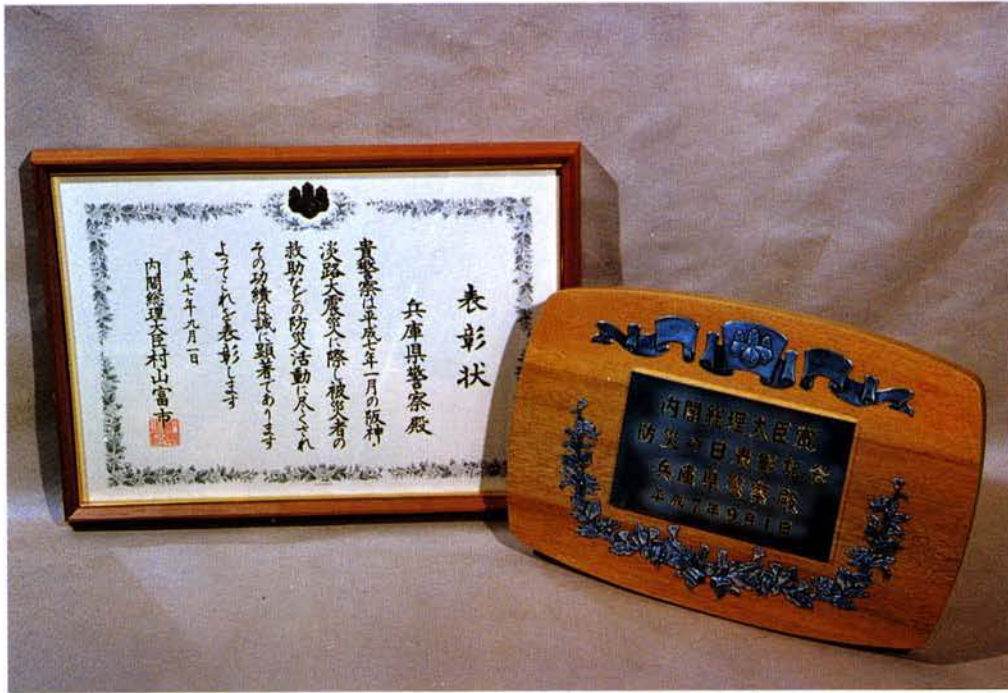 表彰状
兵庫県警察殿
貴警察は平成七年一月の阪神・
淡路大震災に際し被災者の
救助などの防災活動に尽くされ
その功績は誠に顕著であります
よってこれを表彰します
平成七年九月一日
内閣総理大臣村山富市
内閣総理大臣
防災の日表彰記念
兵庫県警察殿
平成7年9月1日